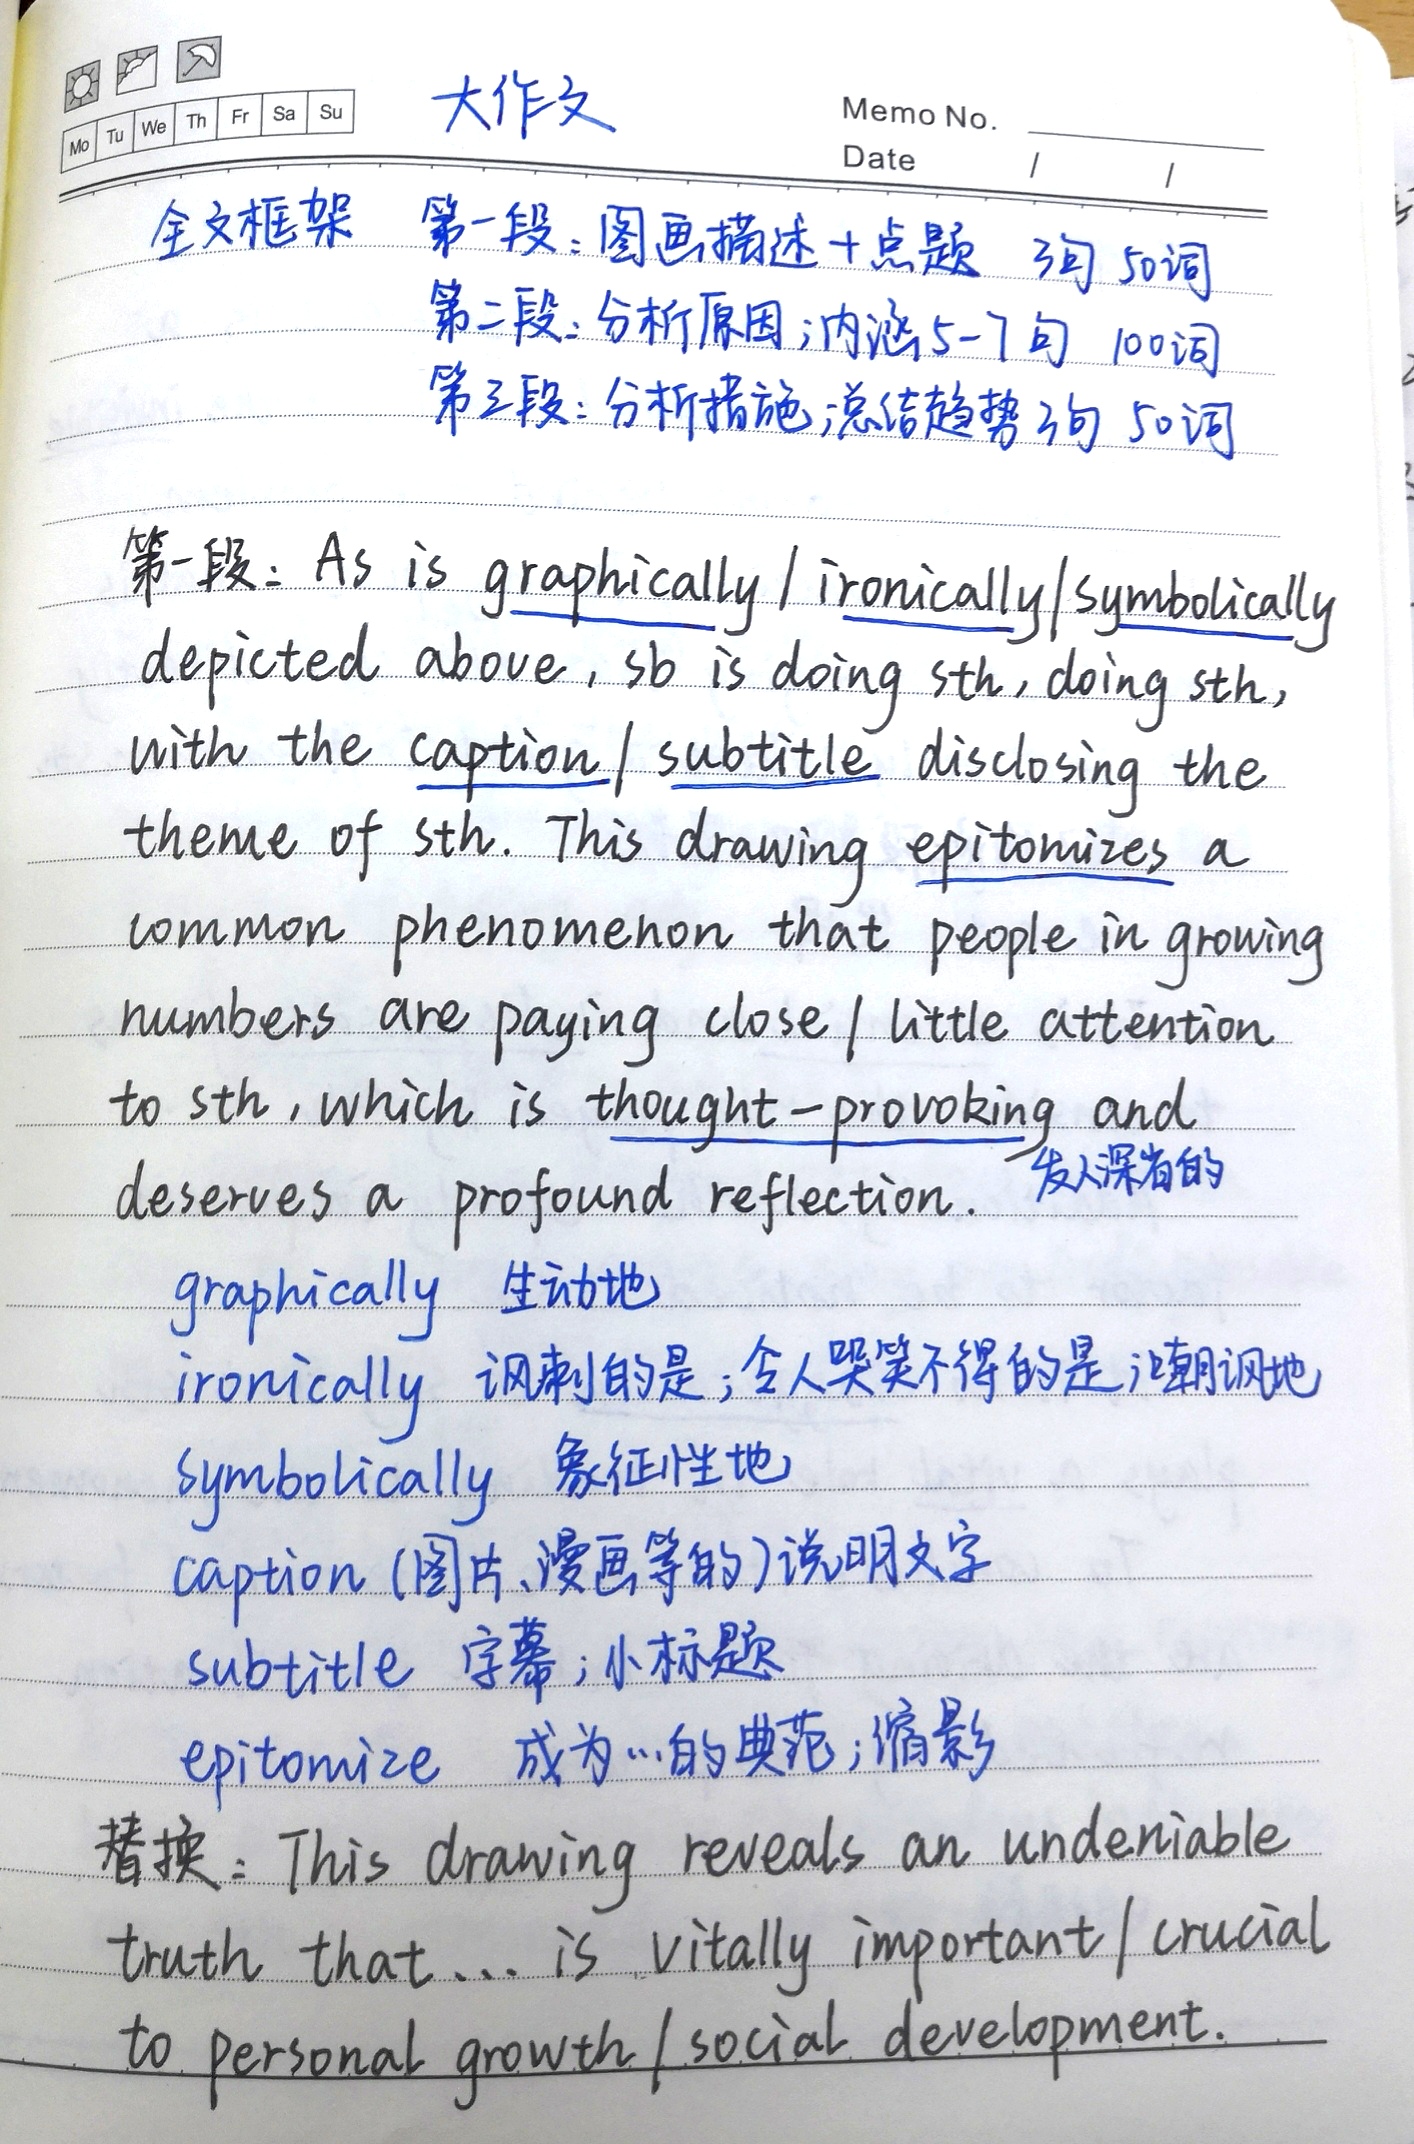 大作文
Memo No.
Mo Tu We Th Fr Sa Su
Date / /
全文框架 第一段：图画描述+点题 3句 50词
第二段：分析原因；内涵5-7句 100词
第三段：分析措施；总结趋势3句 50词
第一段：As is graphically/ironically/symbolically
depicted above, sb is doing sth, doing sth,
with the caption/subtitle disclosing the
theme of sth. This drawing epitomizes a
common phenomenon that people in growing
numbers are paying close/little attention
to sth, which is thought-provoking and
发人深省的
deserves a profound reflection.
graphically 生动地
ironically 讽刺的是；令人哭笑不得的是；嘲讽地
symbolically 象征性地
caption (图片、漫画等的)说明文字
subtitle 字幕；小标题
epitomize 成为…的典范；缩影
替换：This drawing reveals an undeniable
truth that... is vitally important/crucial
to personal growth/social development.